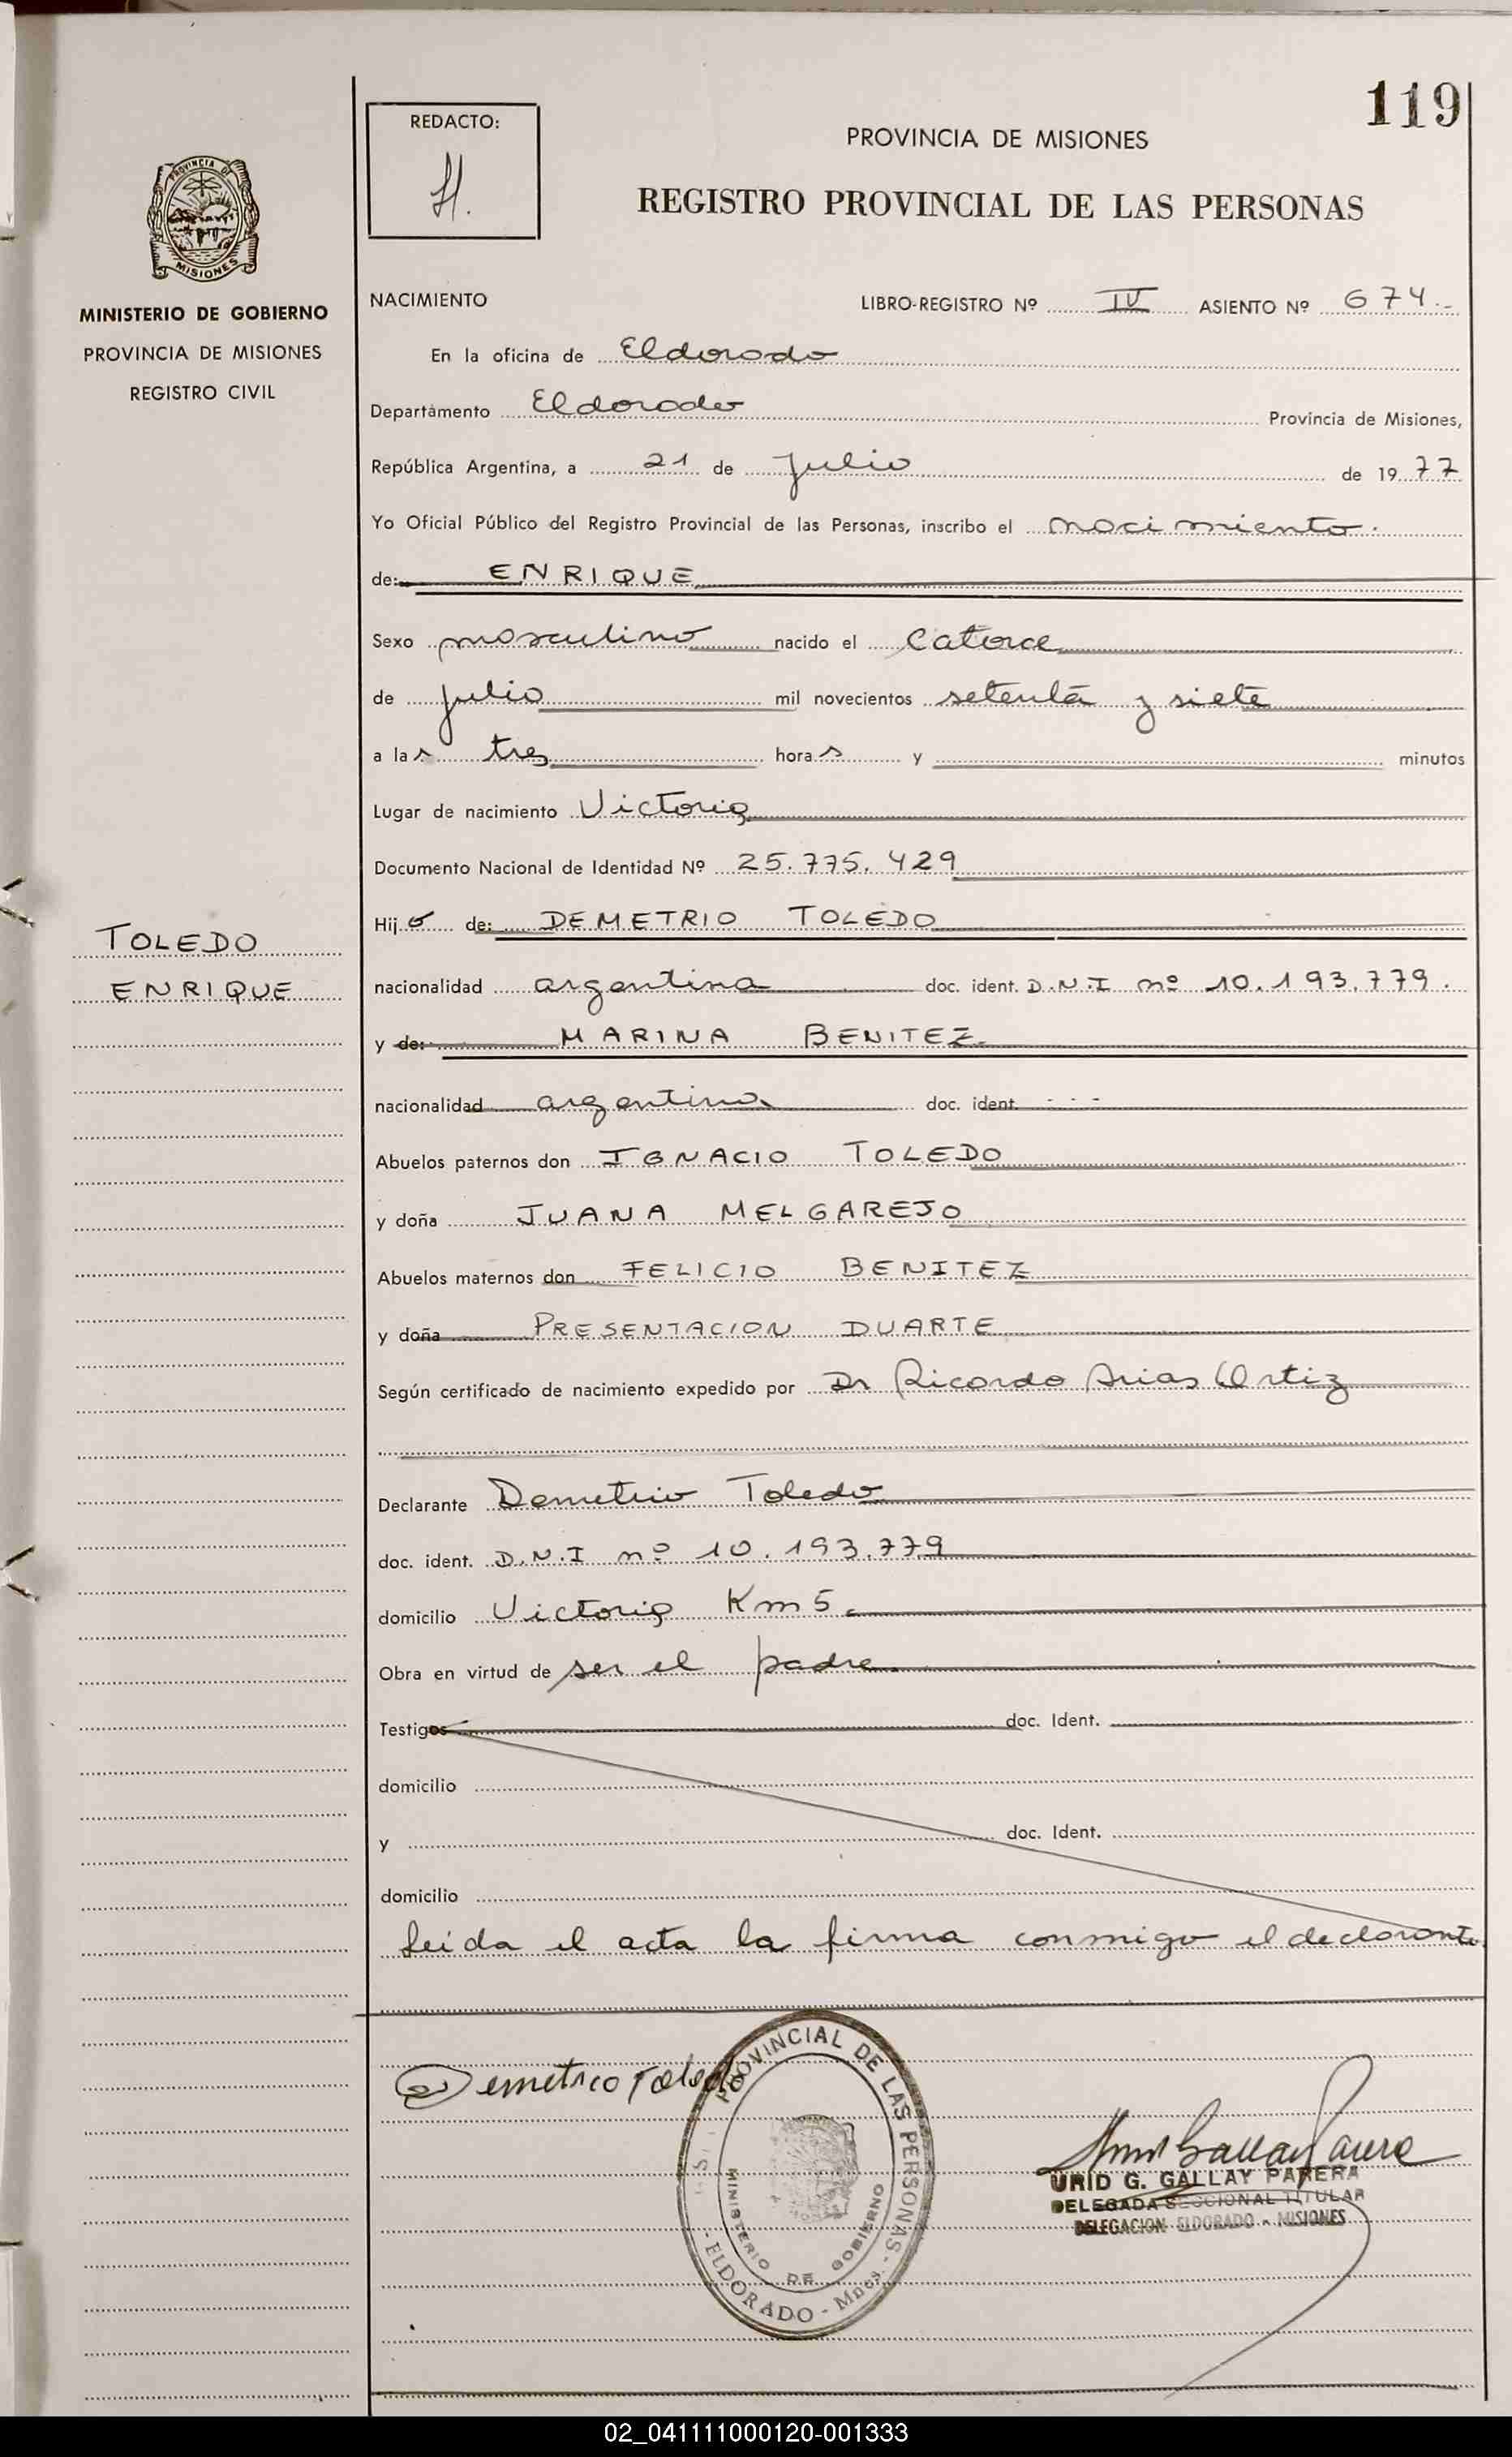 119
REDACTO:
PROVINCIA DE MISIONES
REGISTRO PROVINCIAL DE LAS PERSONAS
PROVINCIA DE
MISIONES
MINISTERIO DE GOBIERNO
PROVINCIA DE MISIONES
REGISTRO CIVIL
NACIMIENTO LIBRO-REGISTRO Nº IV ASIENTO Nº 674.-
En la oficina de Eldorado
Departamento Eldorado Provincia de Misiones,
República Argentina, a 21 de julio de 1977
Yo Oficial Público del Registro Provincial de las Personas, inscribo el nacimiento.
de: ENRIQUE
Sexo masculino nacido el catorce
de julio mil novecientos setenta y siete
a las tres horas y minutos
Lugar de nacimiento Victoria
Documento Nacional de Identidad Nº 25.775.429
Hijo de: DEMETRIO TOLEDO
TOLEDO
ENRIQUE
nacionalidad argentina doc. ident. D.N.I nº 10.193.779.
y de: MARINA BENITEZ
nacionalidad argentina doc. ident. - - -
Abuelos paternos don IGNACIO TOLEDO
y doña JUANA MELGAREJO
Abuelos maternos don FELICIO BENITEZ
y doña PRESENTACION DUARTE
Según certificado de nacimiento expedido por Dr Ricardo Arias Ortiz
Declarante Demetrio Toledo
doc. ident. D.N.I nº 10.193.779
domicilio Victoria Km 5.
Obra en virtud de ser el padre.
Testigos doc. Ident.
domicilio
y doc. Ident.
domicilio
Leida el acta la firma conmigo el declarante.
Demetrio Toledo
PROVINCIAL DE LAS PERSONAS - ELDORADO - Mnes. -
MINISTERIO DE GOBIERNO
URID G. GALLAY PARERA
DELEGADA SECCIONAL TITULAR
DELEGACION ELDORADO - MISIONES
02_041111000120-001333